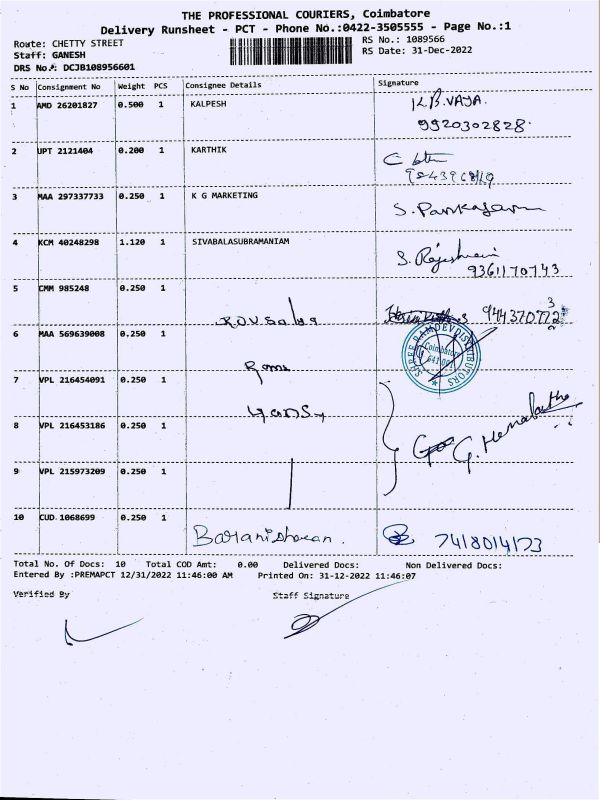 THE PROFESSIONAL COURIERS, Coimbatore
Delivery Runsheet - PCT - Phone No.:0422-3505555 - Page No.:1
Route: CHETTY STREET
RS No.: 1089566
Staff: GANESH
RS Date: 31-Dec-2022
DRS No.: DCJB108956601
S No Consignment No Weight PCS Consignee Details Signature
1 AMD 26201827 0.500 1 KALPESH K.B.VAJA.
9920302828.
2 UPT 2121404 0.200 1 KARTHIK
3 MAA 297337733 0.250 1 K G MARKETING S. Pankajam
4 KCM 40248298 1.120 1 SIVABALASUBRAMANIAM S. Rajeshwari
9361170743
5 CMM 985248 0.250 1
6 MAA 569639008 0.250 1
SHREE RAMDEV DISTRIBUTORS
Coimbatore
641 001
7 VPL 216454091 0.250 1
8 VPL 216453186 0.250 1 G. Hemalatha
9 VPL 215973209 0.250 1
10 CUD 1068699 0.250 1 Baranidharan. 7418014173
Total No. Of Docs: 10 Total COD Amt: 0.00 Delivered Docs: Non Delivered Docs:
Entered By :PREMAPCT 12/31/2022 11:46:00 AM Printed On: 31-12-2022 11:46:07
Verified By Staff Signature